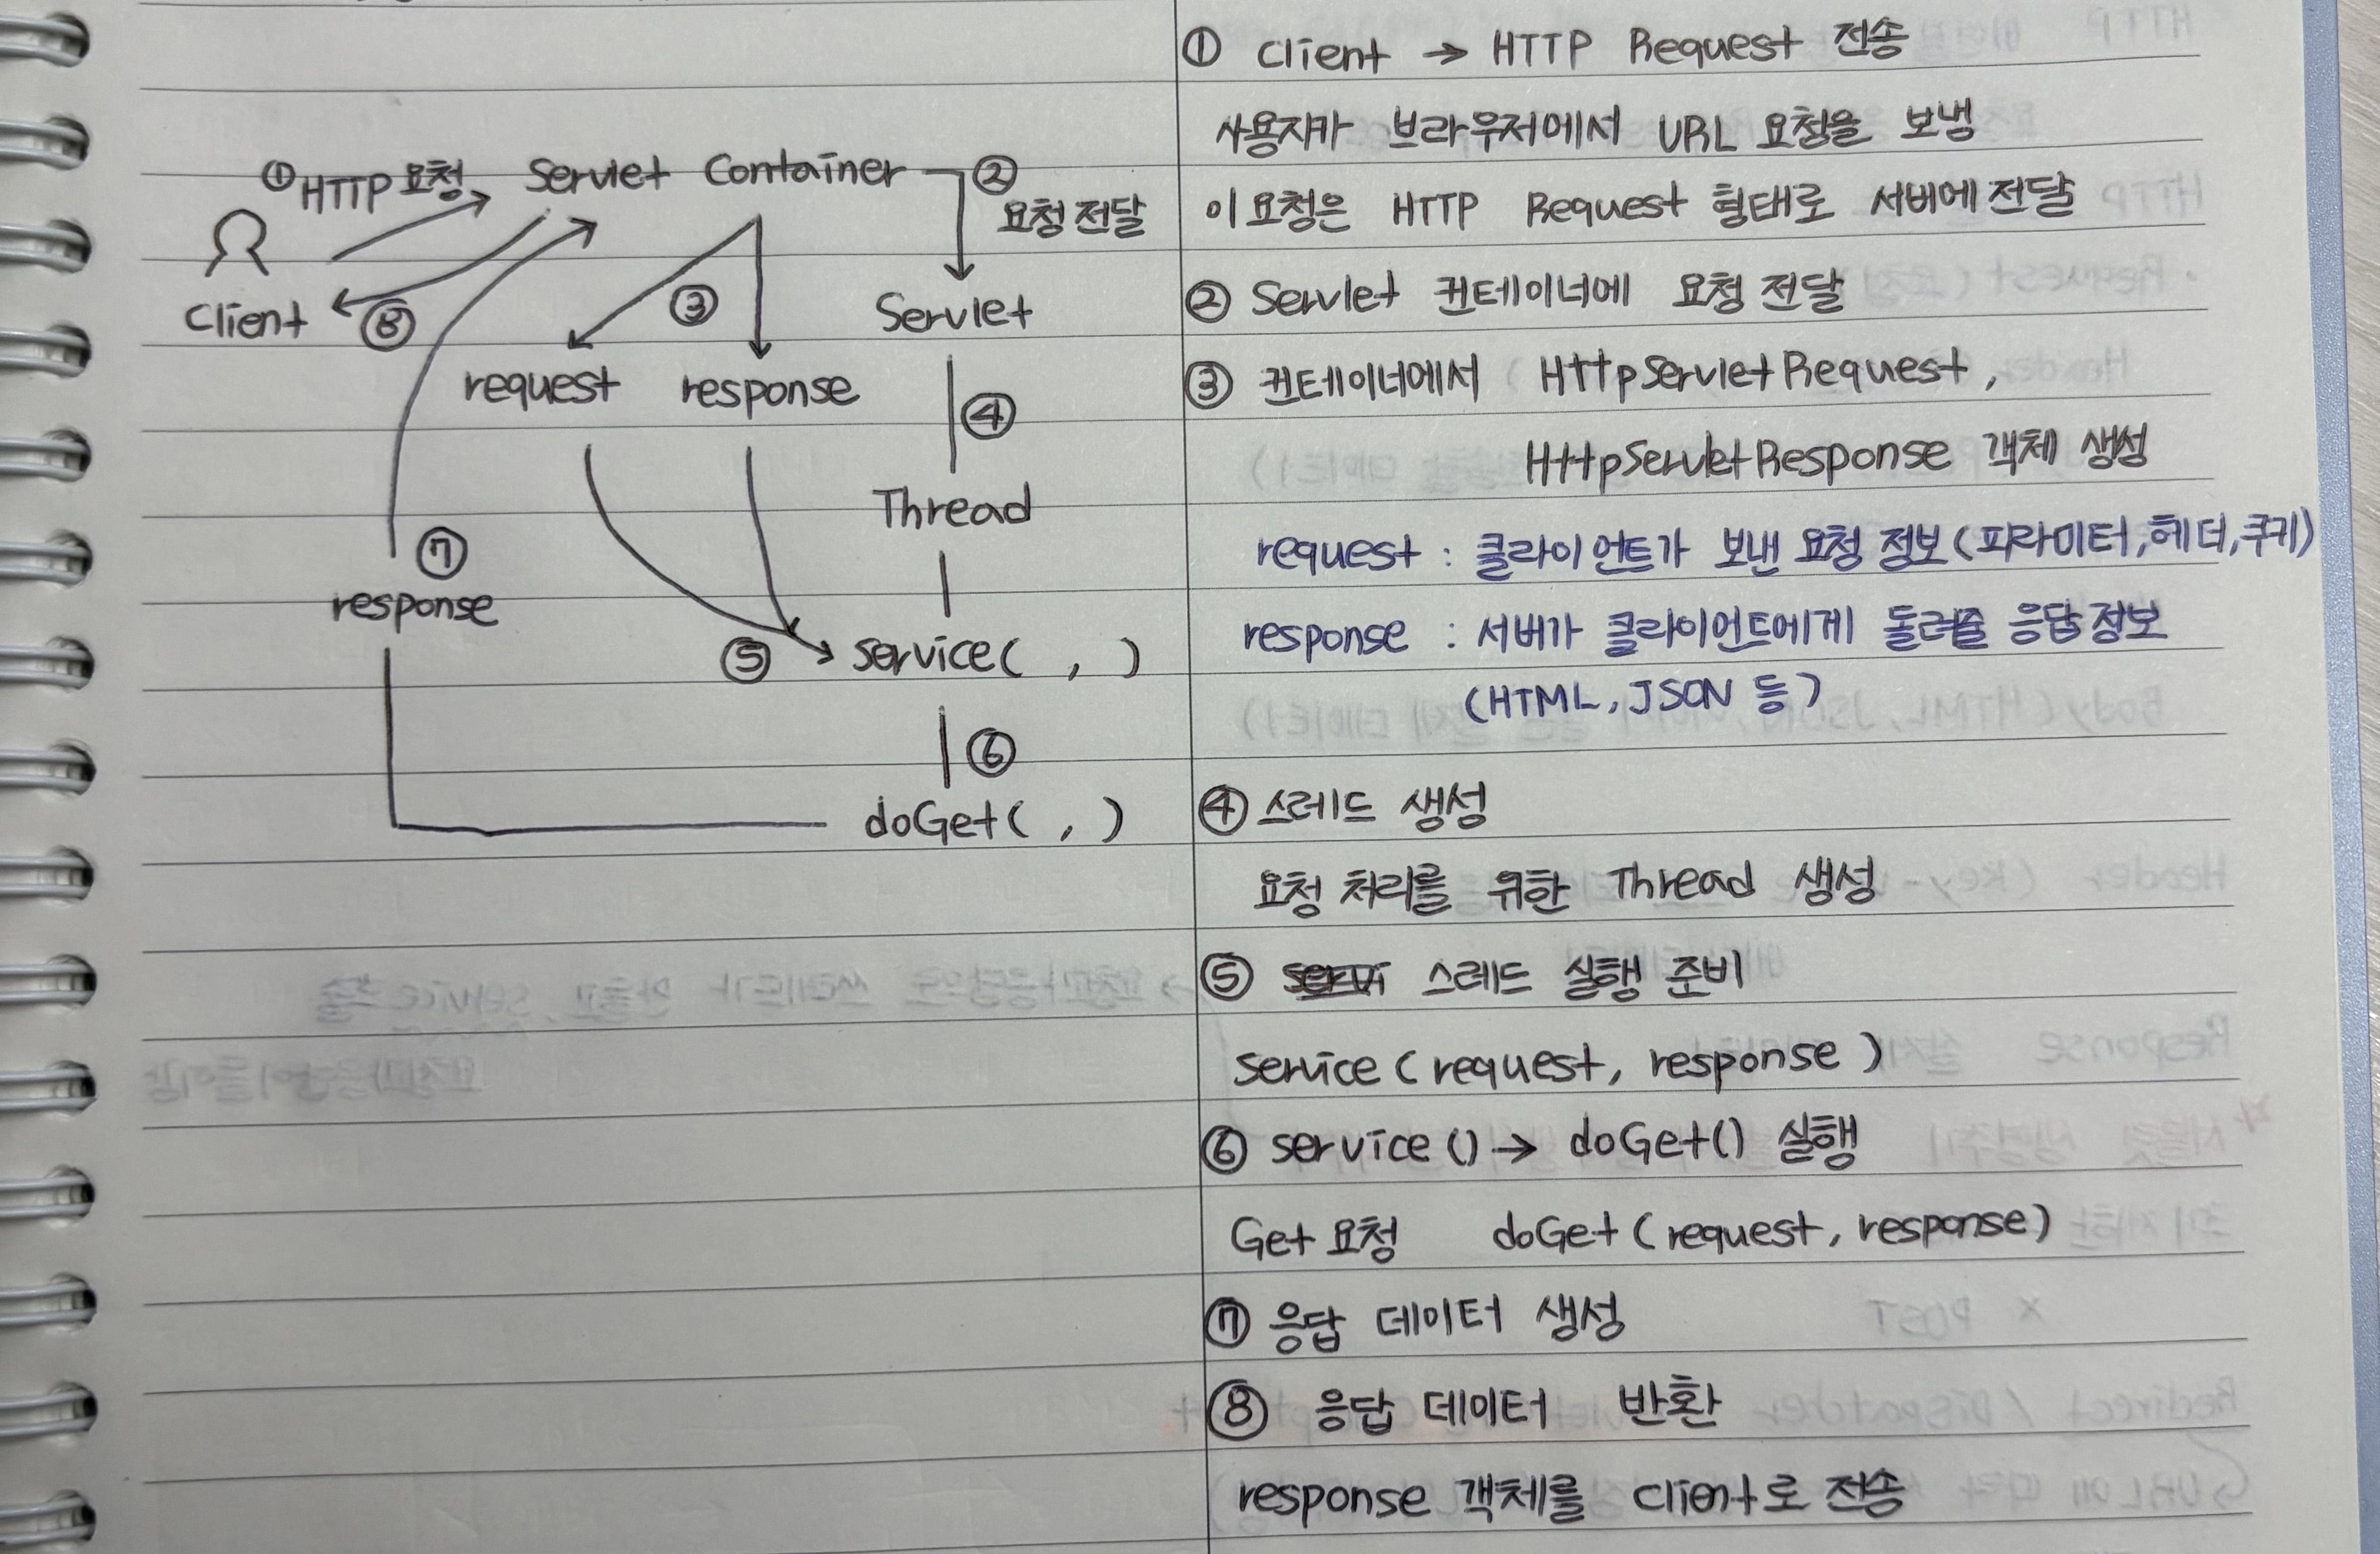 ①HTTP 요청
Servlet Container
②
요청 전달
Client
⑧
③
Servlet
request
response
④
Thread
⑦
response
⑤
service( , )
⑥
doGet( , )
① Client → HTTP Request 전송
사용자가 브라우저에서 URL 요청을 보냄
이 요청은 HTTP Request 형태로 서버에 전달
② Servlet 컨테이너에 요청 전달
③ 컨테이너에서 HttpServletRequest,
HttpServletResponse 객체 생성
request : 클라이언트가 보낸 요청 정보(파라미터,헤더,쿠키)
response : 서버가 클라이언트에게 돌려줄 응답 정보
(HTML, JSON 등)
④ 스레드 생성
요청 처리를 위한 Thread 생성
⑤ 스레드 실행 준비
service ( request, response )
⑥ service () → doGet() 실행
Get 요청 doGet ( request, response)
⑦ 응답 데이터 생성
⑧ 응답 데이터 반환
response 객체를 client로 전송